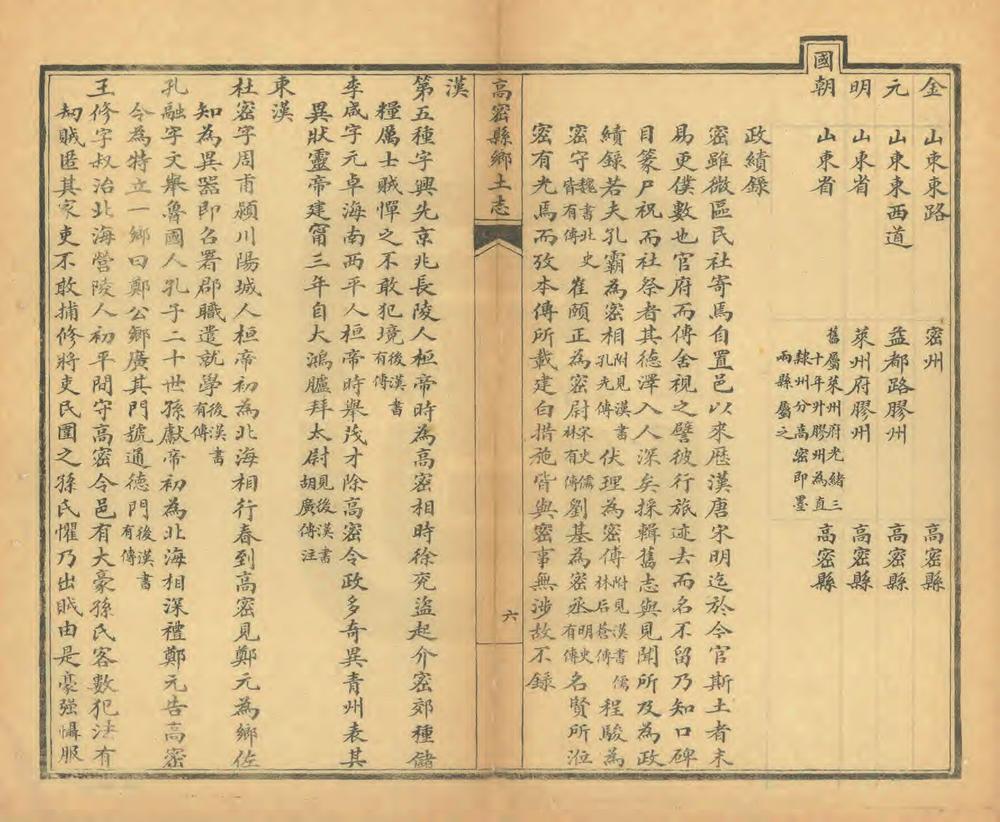 金 山東東路 密州 高密縣
元 山東東西道 益都路膠州 高密縣
明 山東省 萊州府膠州 高密縣
國朝 山東省 舊屬萊州府光緒三十年升膠州為直隸州分高密即墨兩縣屬之 高密縣
政績錄
密雖微區民社寄焉自置邑以來歷漢唐宋明迄於今官斯土者未
易更僕數也官府而傳舍視之譬彼行旅迹去而名不留乃知口碑
目篆尸祝而社祭者其德澤入人深矣採輯舊志與見聞所及為政
績錄若夫孔霸為密相附見漢書孔光傳伏理為密傅附見漢書儒林后蒼傳程駿為
密守魏書北史皆有傳崔頤正為密尉宋史儒林有傳劉基為密丞明史有傳名賢所涖
密有光焉而攷本傳所載建白措施皆與密事無涉故不錄
高密縣鄉土志
六
漢
第五種字興先京兆長陵人桓帝時為高密相時徐兗盜起介密郊種儲
糧厲士賊憚之不敢犯境後漢書有傳
李咸字元卓海南西平人桓帝時舉茂才除高密令政多奇異青州表其
異狀靈帝建甯三年自大鴻臚拜太尉見後漢書胡廣傳注
東漢
杜密字周甫潁川陽城人桓帝初為北海相行春到高密見鄭元為鄉佐
知為異器即召署郡職遣就學後漢書有傳
孔融字文舉魯國人孔子二十世孫獻帝初為北海相深禮鄭元告高密
令為特立一鄉曰鄭公鄉廣其門號通德門後漢書有傳
王修字叔治北海營陵人初平間守高密令邑有大豪孫氏客數犯法有
刼賊匿其家吏不敢捕修將吏民圍之孫氏懼乃出賊由是豪強懾服